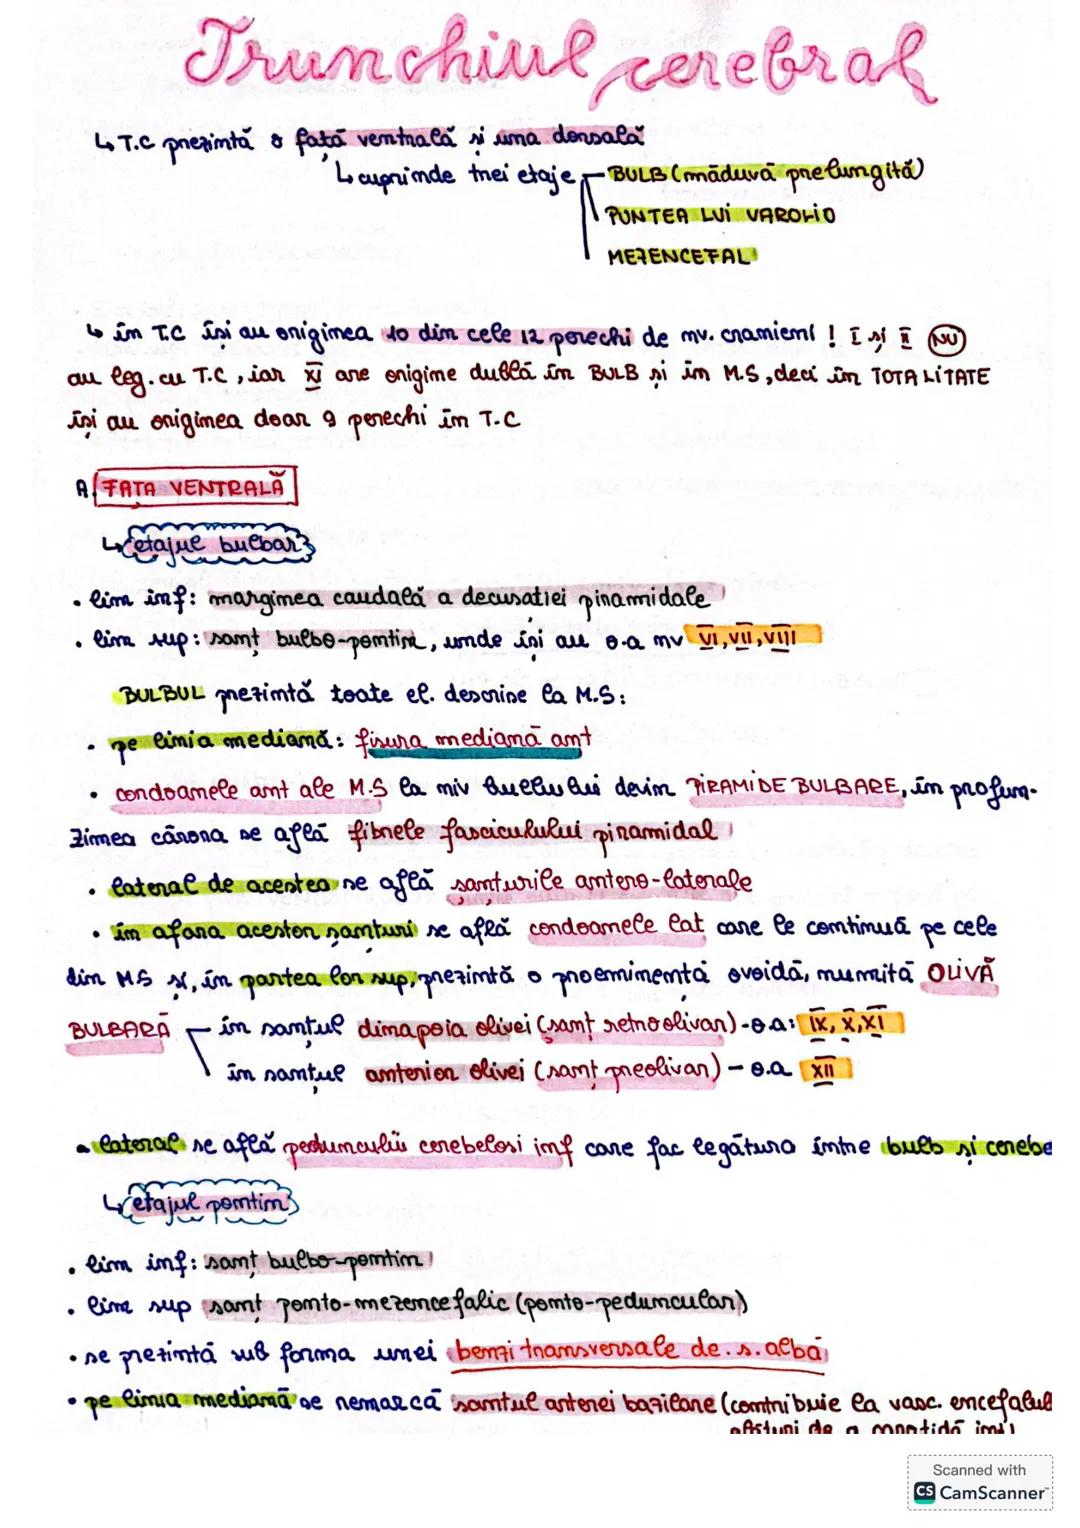 Trunchiul cerebral
↳ T.C prezintă o față ventrală și una dorsală
↳ cuprinde trei etaje BULB (măduvă prelungită)
PUNTEA LUI VAROLIO
MEZENCEFAL
↳ în T.C își au originea 10 din cele 12 perechi de nv. cranieni ! I și II NU
au leg. cu T.C, iar XI are origine dublă în BULB și în M.S, deci în TOTALITATE
își au originea doar 9 perechi în T.C
A. FAȚA VENTRALĂ
↳ etajul bulbar
• lim inf: marginea caudală a decusației piramidale
• lim sup: șanț bulbo-pontin, unde își au o.a nv VI, VII, VIII
BULBUL prezintă toate el. descrise la M.S:
• pe linia mediană: fisura mediană ant
• cordoanele ant ale M.S la niv bulbului devin PIRAMIDE BULBARE, în profun-
zimea cărora se află fibrele fasciculului piramidal
• lateral de acestea se află șanțurile antero-laterale
• în afara acestor șanțuri se află cordoanele lat care le continuă pe cele
din MS și, în partea lor sup, prezintă o proeminență ovoidă, numită OLIVĂ
BULBARĂ în șanțul dinapoia olivei (șanț retroolivar) - o.a: IX, X, XI
în șanțul anterior olivei (șanț preolivar) - o.a XII
• lateral se află pedunculii cerebeloși inf care fac legătura între bulb și cerebe
↳ etajul pontin
• lim inf: șanț bulbo-pontin
• lim sup șanț ponto-mezencefalic (ponto-peduncular)
• se prezintă sub forma unei benzi transversale de s. albă
• pe linia mediană se remarcă șanțul arterei bazilare (contribuie la vasc. encefalul
alături de a carotidă int)
Scanned with
CS CamScanner